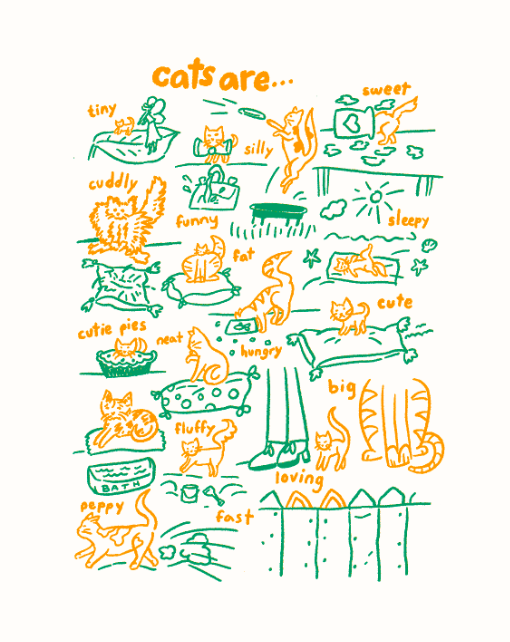 cats are...
tiny
sweet
silly
cuddly
funny
sleepy
fat
cute
cutie pies
neat
hungry
big
fluffy
loving
BATH
peppy
fast